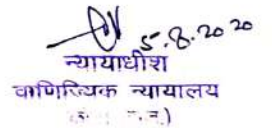 5.8.2020
न्यायाधीश
वाणिज्यिक न्यायालय